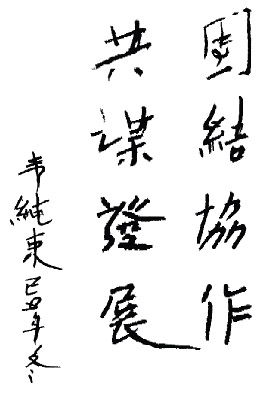 团結協作
共謀發展
韦純束己丑年冬